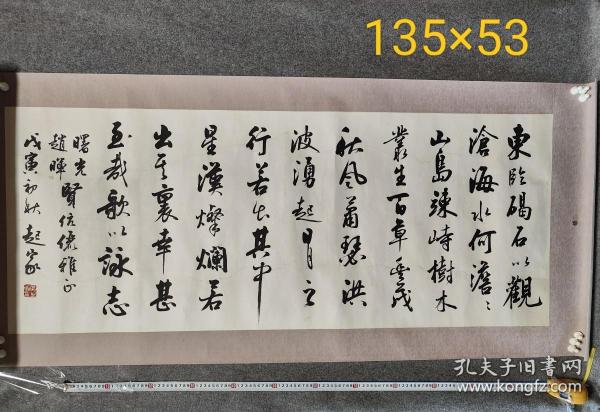 135×53
東臨碣石以觀
滄海水何澹〻
山島竦峙樹木
叢生百草豐茂
秋風蕭瑟洪
波湧起日月之
行若出其中
星漢燦爛若
出其裏幸甚
至哉歌以詠志
曙光
趙暉 賢伉儷雅正
戊寅初秋 起家
孔夫子旧书网
www.kongfz.com